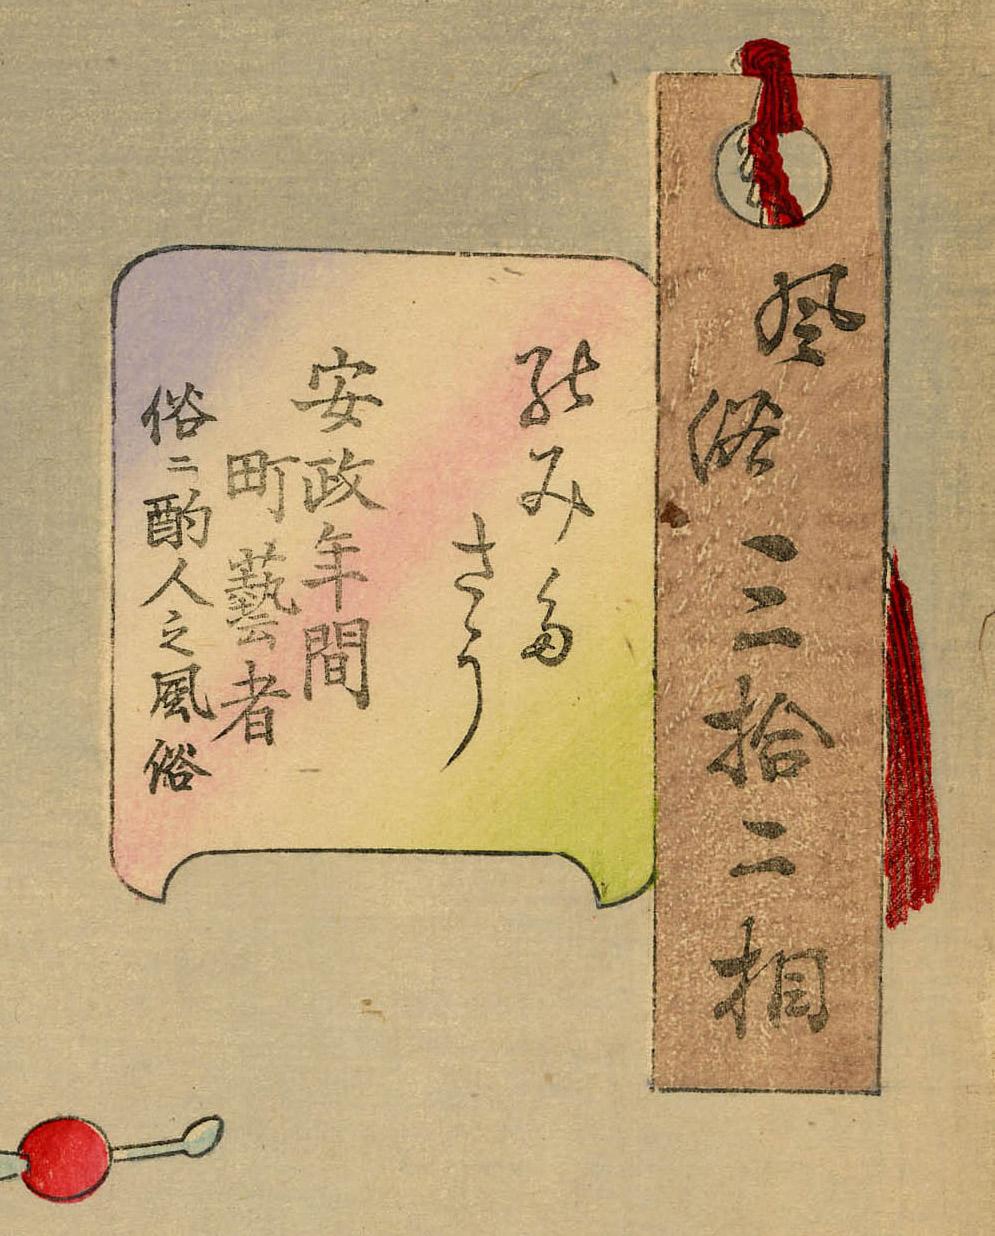 風俗三拾二相
のみた
さう
安政年間
町藝者
俗ニ酌人之風俗